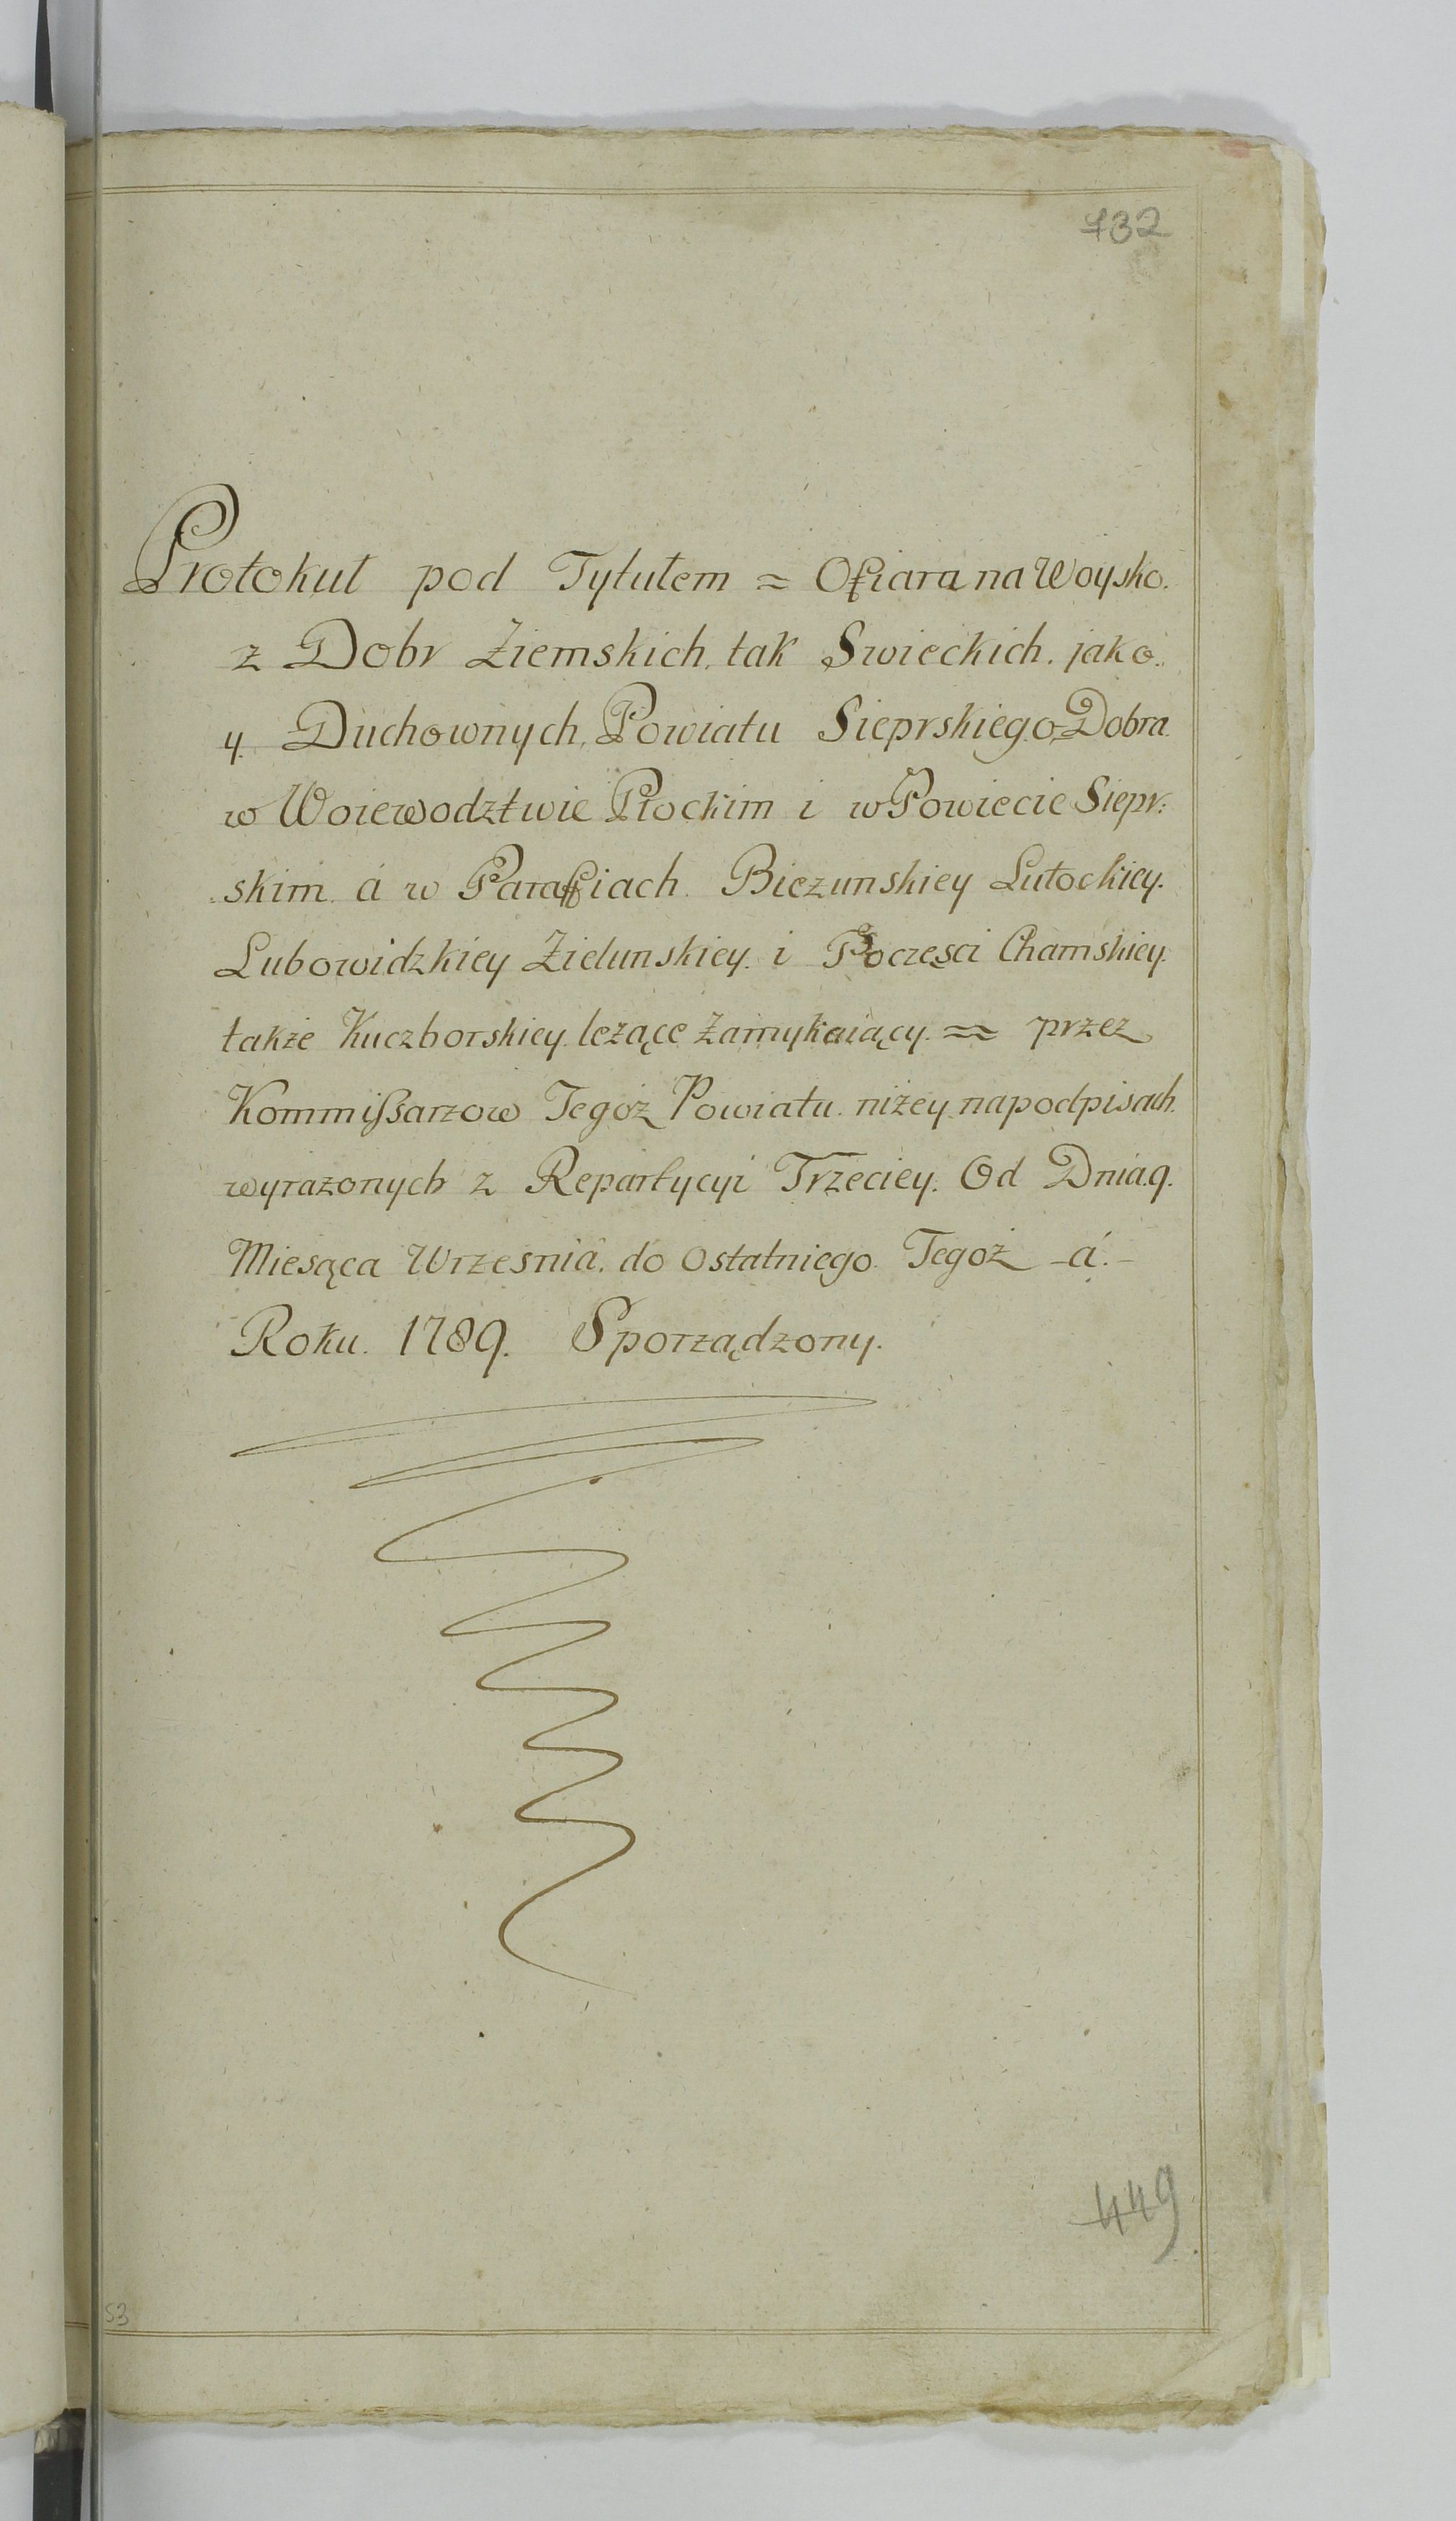 732
Protokuł pod Tytułem = Ofiara na Woysko.
z Dobr Ziemskich, tak Swieckich. jako.
y. Duchownych, Powiatu Sieprskiego, Dobra
w Woiewodztwie Płockim i w Powiecie Siepr:
skim. á w Paraffiach. Biezunskiey Lutockiey.
Lubowidzkiey Zielunskiey. i Poczęsci Chamskiey.
także Kuczborskiey. leżące zamykaiący. == przez
Kommißarzow Tegóż Powiatu. niżey napodpisach.
wyrażonych z Repartycyi Trzeciey. Od Dnia.9.
Miesąca Wrzesnia. do Ostatniego. Tegoż -á.-
Roku. 1789. Sporządzony.
449
53